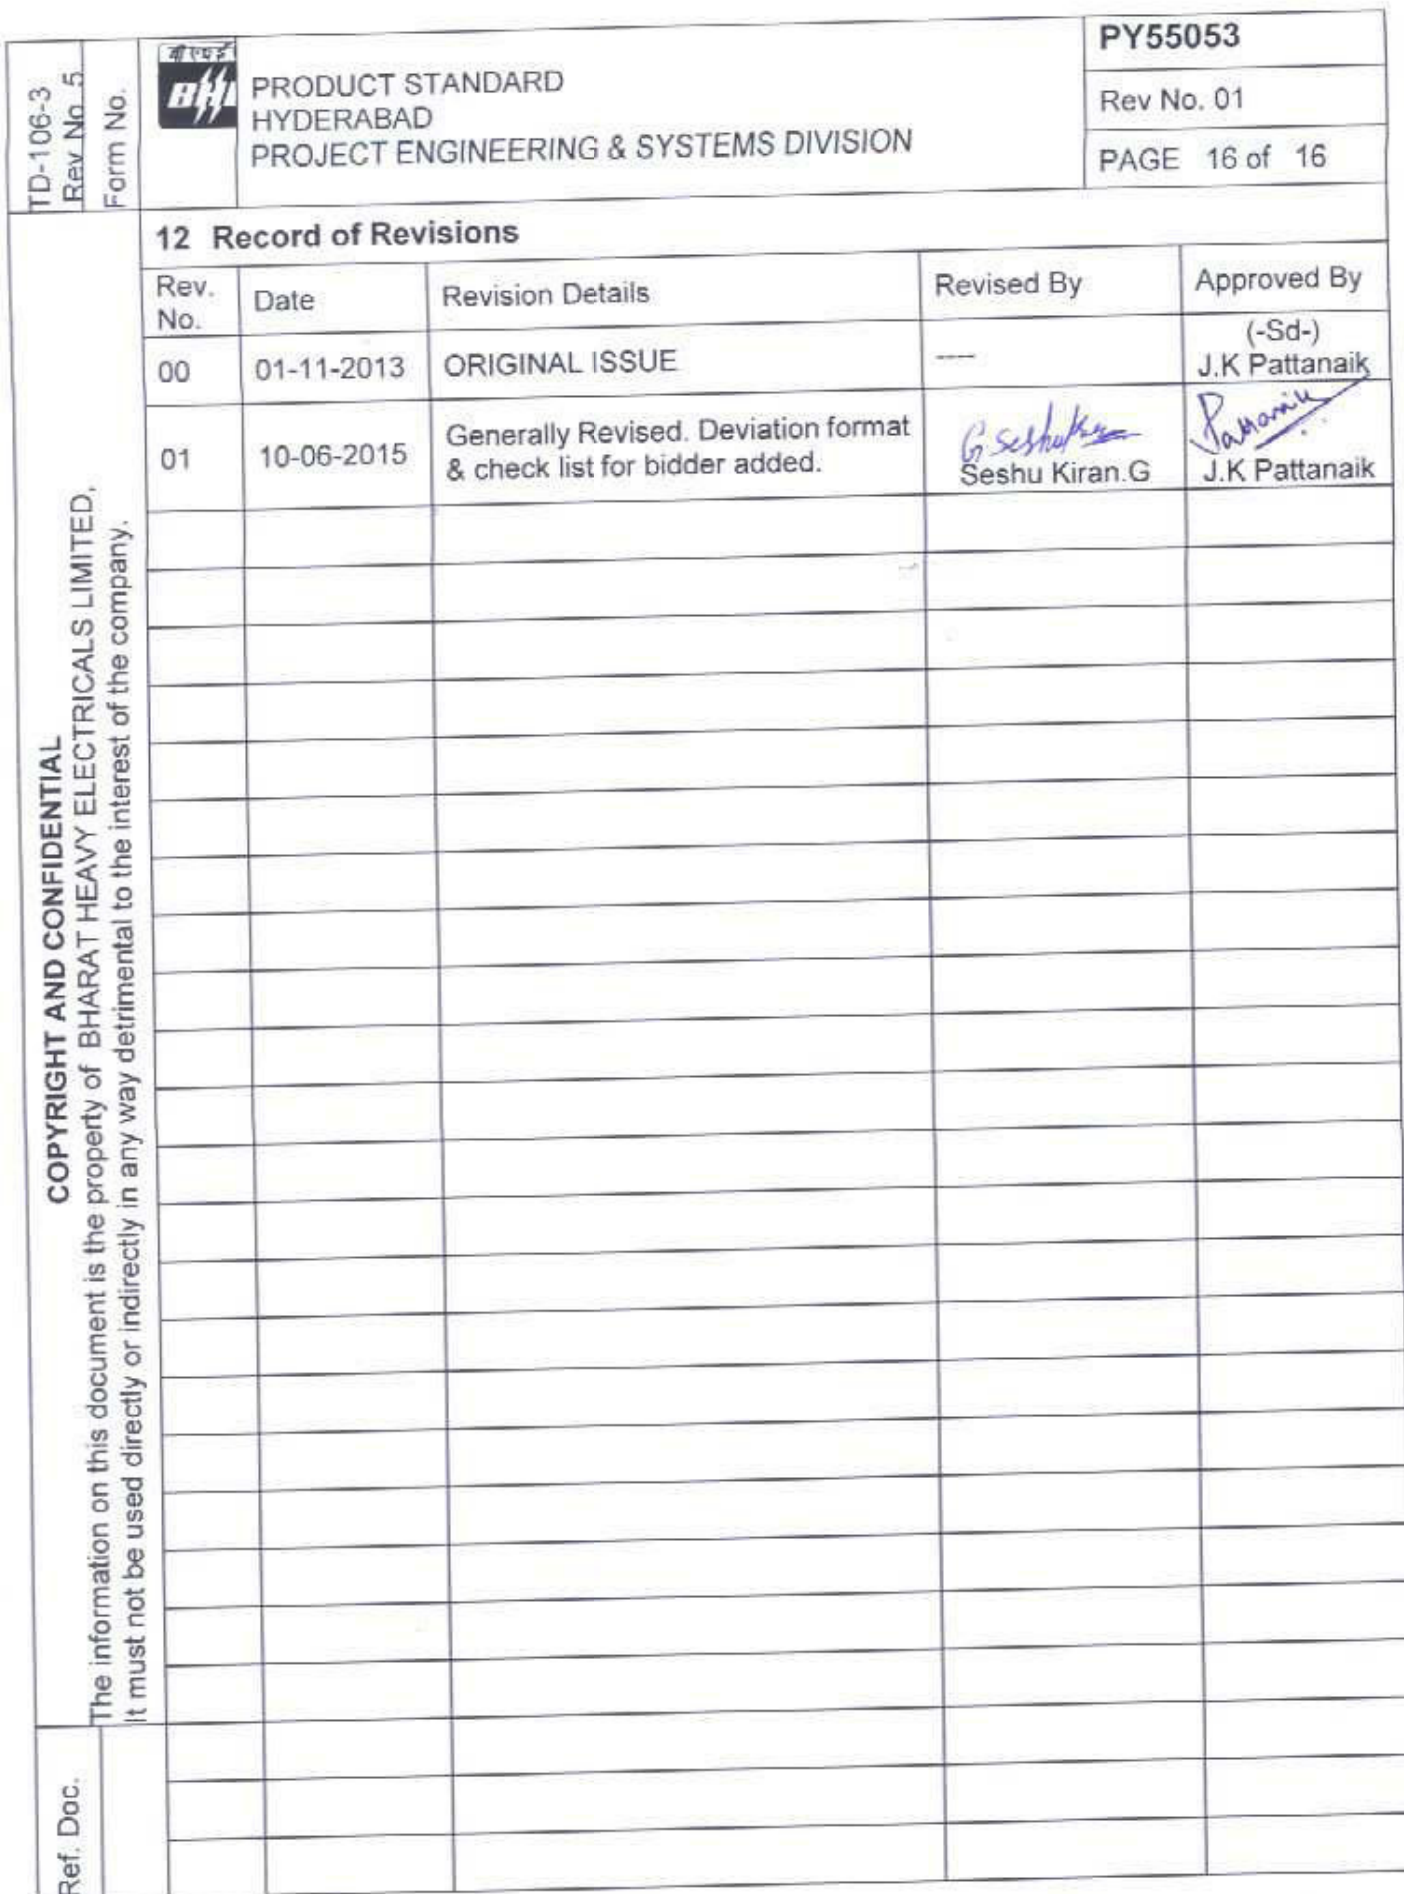 TD-106-3
Rev No. 5
Form No.
PRODUCT STANDARD
HYDERABAD
PROJECT ENGINEERING & SYSTEMS DIVISION
PY55053
Rev No. 01
PAGE 16 of 16
12 Record of Revisions
Rev. No.
Date
Revision Details
Revised By
Approved By
00
01-11-2013
ORIGINAL ISSUE
----
(-Sd-)
J.K Pattanaik
01
10-06-2015
Generally Revised. Deviation format
& check list for bidder added.
Seshu Kiran.G
Pattanaik
J.K Pattanaik
COPYRIGHT AND CONFIDENTIAL
The information on this document is the property of BHARAT HEAVY ELECTRICALS LIMITED,
It must not be used directly or indirectly in any way detrimental to the interest of the company.
Ref. Doc.